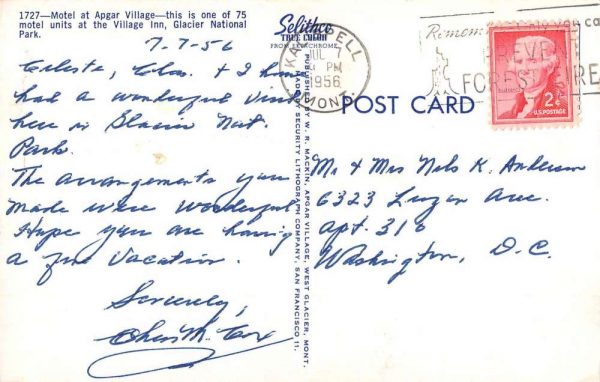 1727—Motel at Apgar Village—this is one of 75
motel units at the Village Inn, Glacier National
Park.
7-7-56
Celeste, Chas. + I have
had a wonderful visit
here in Glacier Nat.
Park.
The arrangements you
made were wonderful
Hope you are having
a fine vacation.
Sincerely,
Chas M. Cox
Selithco
TRUE COLOR
FROM EKTACHROME
PUBLISHED BY W. R. MACKIN, APGAR VILLAGE, WEST GLACIER, MONT.
MADE BY SECURITY LITHOGRAPH COMPANY, SAN FRANCISCO 11.
KALISPELL
JUL 7
PM
1956
MONT.
POST CARD
2¢
U.S. POSTAGE
Mr & Mrs Nels K. Anderson
6323 Luzon Ave.
Apt. 310
Washington, D.C.